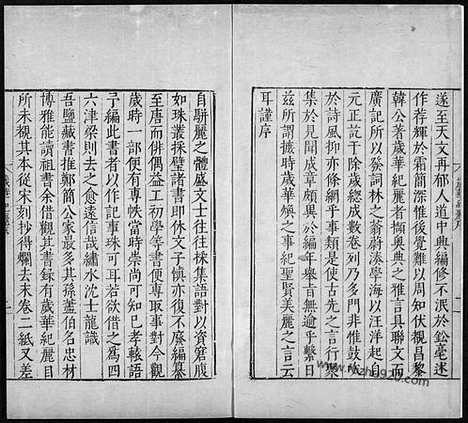 遂至天文再郁人道中興編修不泯於鉛毫迷
作荐輝於霜簡深惟後覺難以周知伏覩昌黎
韓公著歲華紀麗者擷奧典之雅言具聯文而
廣記所資發詞林之蓊蔚湊學海以汪洋起自
元正訖于除歲總成數卷列乃多門非惟鼓吹
於詩風抑亦條綱乎事類是使古之言行聚
集於見聞成章頗異於編年舉昔無逾乎繫日
茲所謂摭時歲華煥之事紀聖賢美麗之言云
耳謹序
歲華紀麗序
自駢麗之體盛文士往往採集語對以資窘腹
如珠叢採璧諸書即休文子慎亦復不廢編纂
至唐而俳偶益工初學等書便專取事對今于
歲時一部便有專帙當時崇尚可知已孝轅語
予編此書者以作記事珠可耳若欲借之為四
六津梁則去之愈遠信哉繡水沈士龍識
吾鹽藏書推鄭簡公家最多其孫藎伯名忠材
博雅能讀祖書余借觀其書録有歲華紀麗目
所未覩其本從宋刻抄得爛去末卷二紙又差